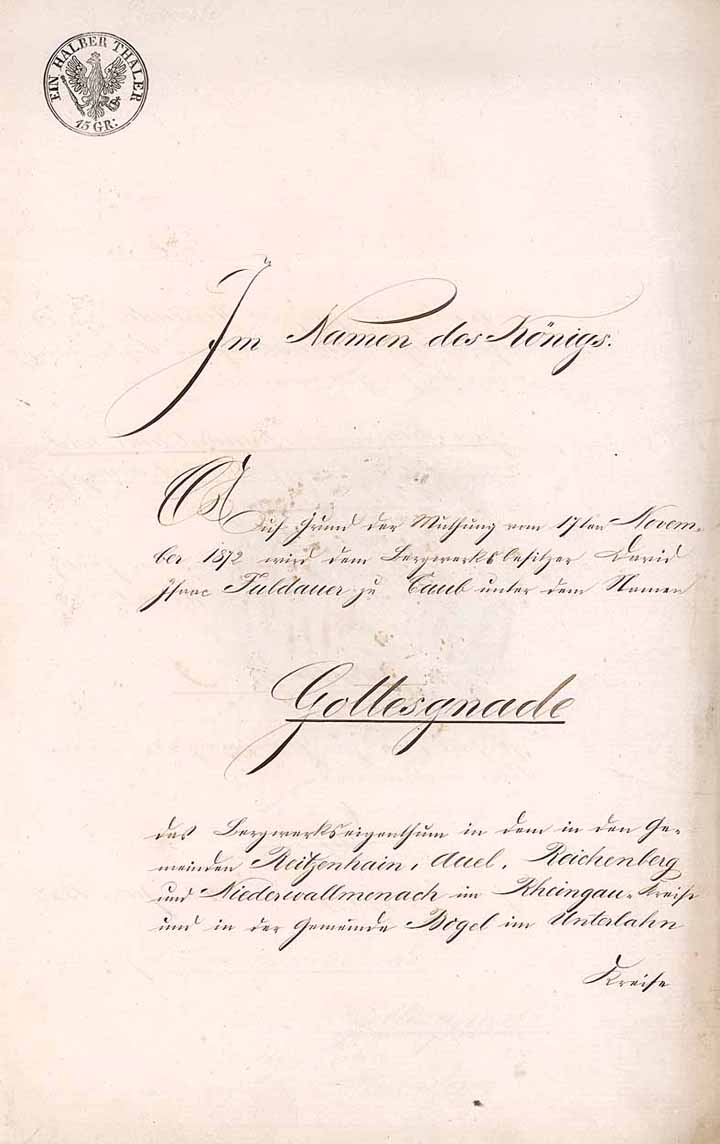 EIN HALBER THALER
15 GR:
Im Namen des Königs.
Auf Grund der Muthung vom 17ten Novem-
ber 1872 wird dem Bergwerksbesitzer David
Isaac Fuldauer zu Caub unter dem Namen
Gottesgnade
das Bergwerkseigenthum in dem in den Ge-
meinden Reitzenhain, Auel, Reichenberg
und Niederwallmenach im Rheingau-Kreise
und in der Gemeinde Bogel im Unterlahn
Kreise